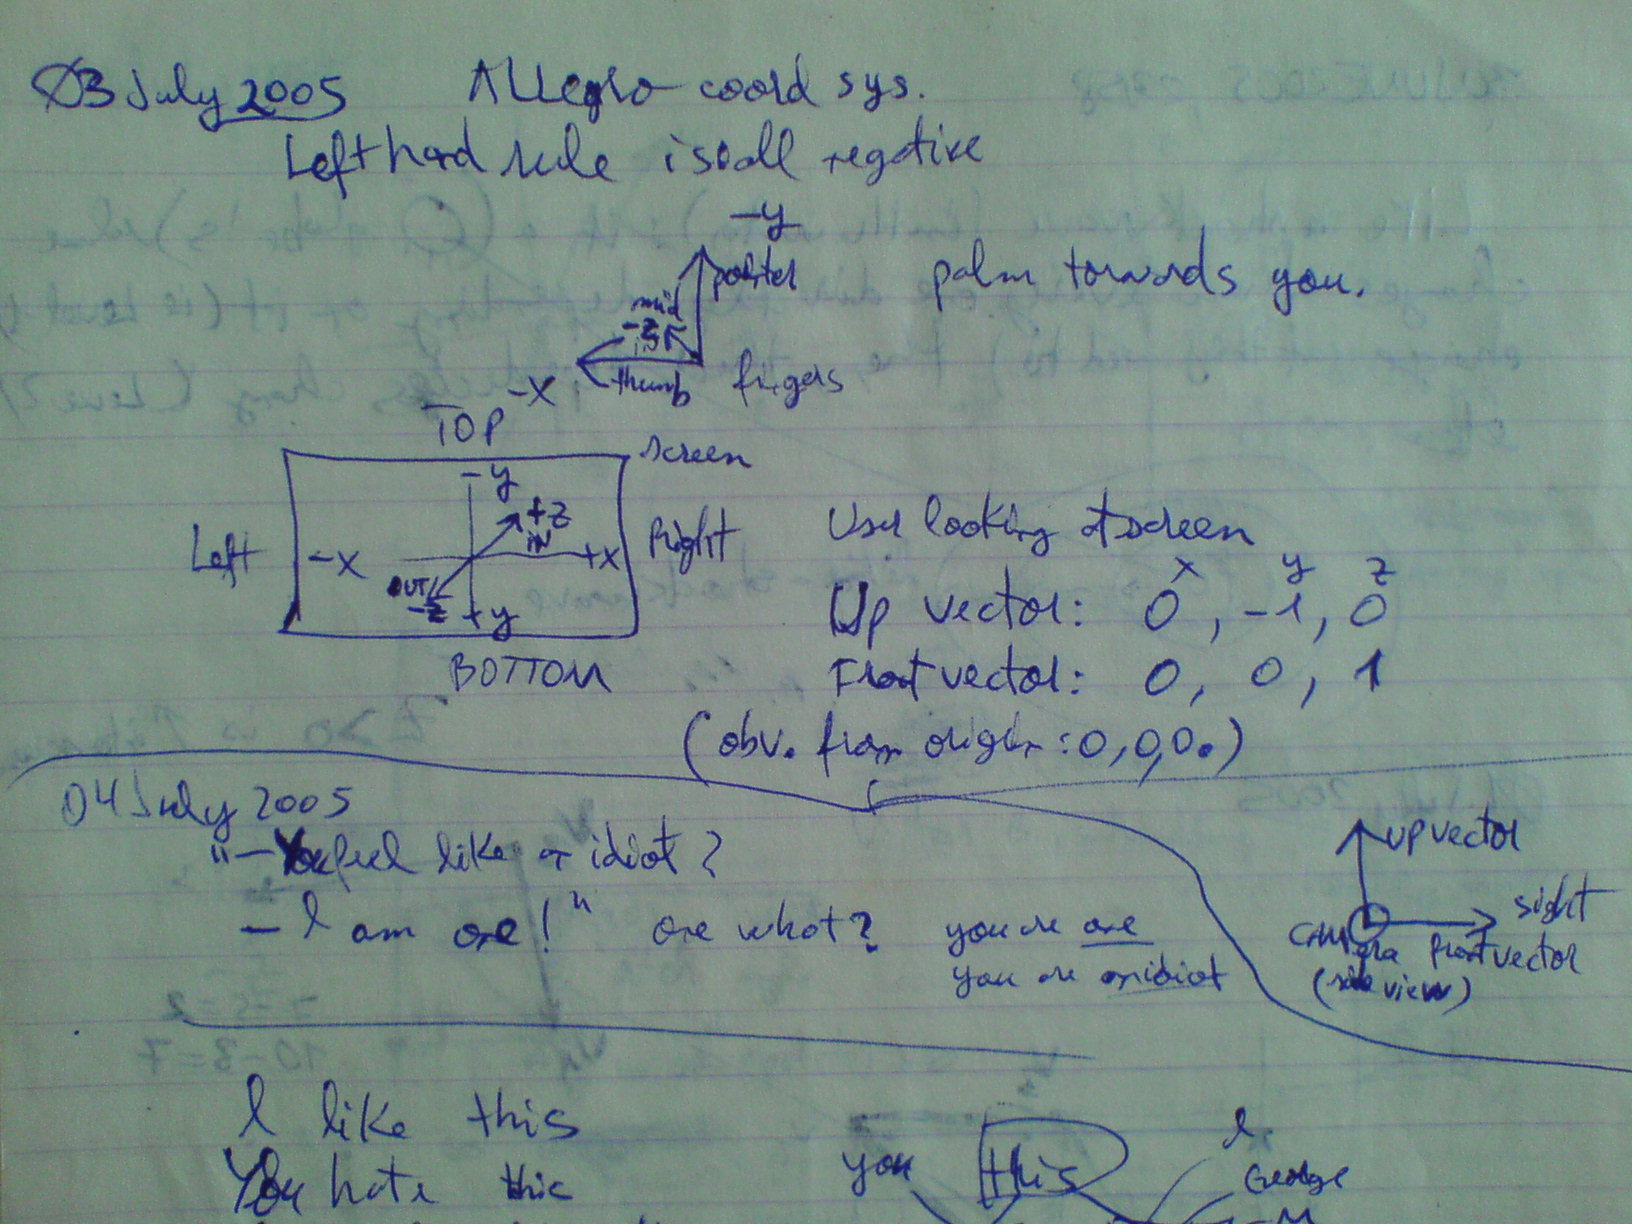 03 July 2005 Allegro coord sys.
Left hand rule is all negative
-y
pointer
palm towards you.
mid
-z
is
thumb
fingers
-x
TOP
screen
-y
+z
IN
Left
-x
+x
Right
OUT
-z
+y
BOTTOM
User looking at screen
x y z
Up vector: 0, -1, 0
Front vector: 0, 0, 1
(obv. from origin: 0,0,0.)
04 July 2005
"- You feel like an idiot?
- I am one!" one what? you're one
you are an idiot
up vector
sight
CAMera front vector
(side view)
I like this
You hate this
you
this
I
George